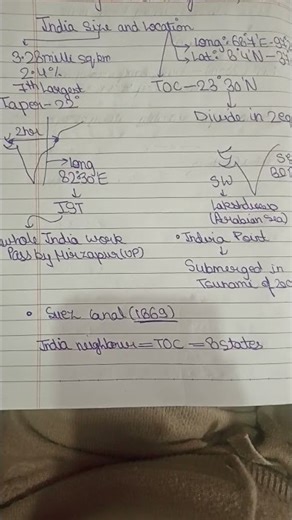 India Size and Location
3.28 mille sq.km
2.4%
7th Largest
Taper - 22°
→ Long: 68°7'E - 9
→ Lat: 8°4'N - 3
TOC - 23°30'N
Divide in 2 eq
2 hou
→ long
82°30'E
IST
whole India work
Pass by Mirzapur (UP)
SW
Lakshdweep
(Arabian Sea)
• Indira Point
Submerged in
Tsunami of 200
• Suez Canal (1869)
India neighbour = TOC = 8 States